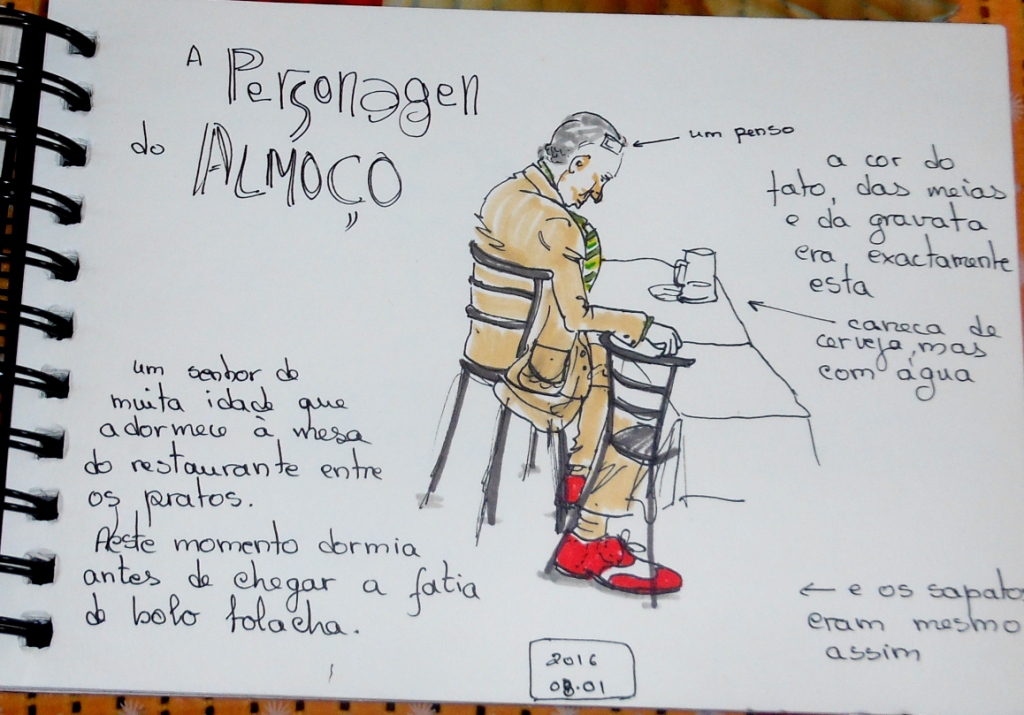 A Personagen
do ALMOÇO
um penso
a cor do
fato, das meias
e da gravata
era exactamente
esta
caneca de
cerveja, mas
com água
um senhor de
muita idade que
adormece à mesa
do restaurante entre
os pratos.
Neste momento dormia
antes de chegar a fatia
de bolo bolacha.
e os sapatos
eram mesmo
assim
2016
08.01